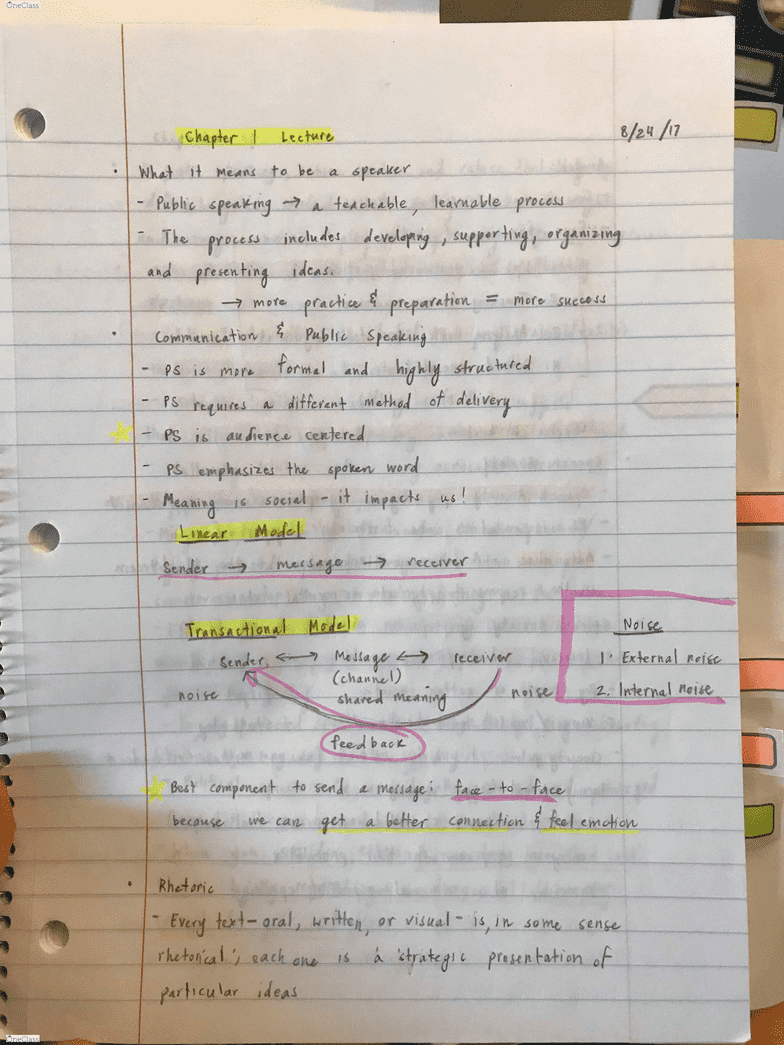 OneClass
Chapter 1 Lecture
8/24/17
• What it means to be a speaker
- Public speaking → a teachable, learnable process
- The process includes developing, supporting, organizing
and presenting ideas.
→ more practice & preparation = more success
• Communication & Public Speaking
- PS is more formal and highly structured
- PS requires a different method of delivery
- PS is audience centered
- PS emphasizes the spoken word
- Meaning is social - it impacts us!
Linear Model
Sender → message → receiver
Transactional Model
Sender ↔ Message ↔ receiver
(channel)
noise shared meaning noise
feedback
Noise
1. External noise
2. Internal noise
Best component to send a message: face-to-face
because we can get a better connection & feel emotion
• Rhetoric
- Every text - oral, written, or visual - is, in some sense
rhetorical; each one is a strategic presentation of
particular ideas
OneClass